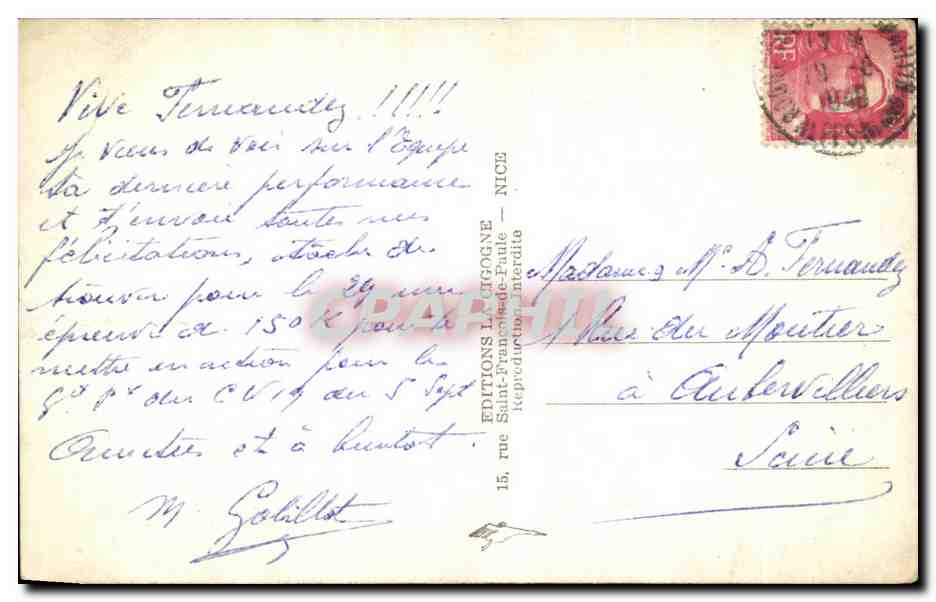 Vive Fernandez !!!!!
Je viens de voir sur l'Equipe
ta dernière performance
et t'envoie toutes mes
félicitations, tâche de
trouver pour le 29 une
épreuve de 150 K pour te
mettre en action pour le
Gd Px du CV19 du 5 Sept
Amitiés et à bientôt.
M. Gobillot
EDITIONS LA CIGOGNE
15, rue Saint-François-de-Paule — NICE
Reproduction Interdite
RF
Madame & Mr A. Fernandez
Rue du Moutier
à Aubervilliers
Seine
CPARHIL